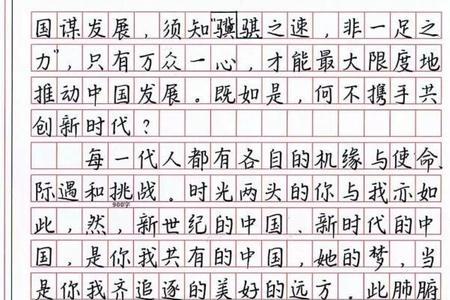 国谋发展，须知"骥骐之速，非一足之
力"，只有万众一心，才能最大限度地
推动中国发展。既如是，何不携手共
创新时代？
每一代人都有各自的机缘与使命、
际遇和挑战。时光两头的你与我亦如
900字
此，然，新世纪的中国、新时代的中
国，是你我共有的中国，她的梦，当
是你我齐追逐的美好的远方。此肺腑